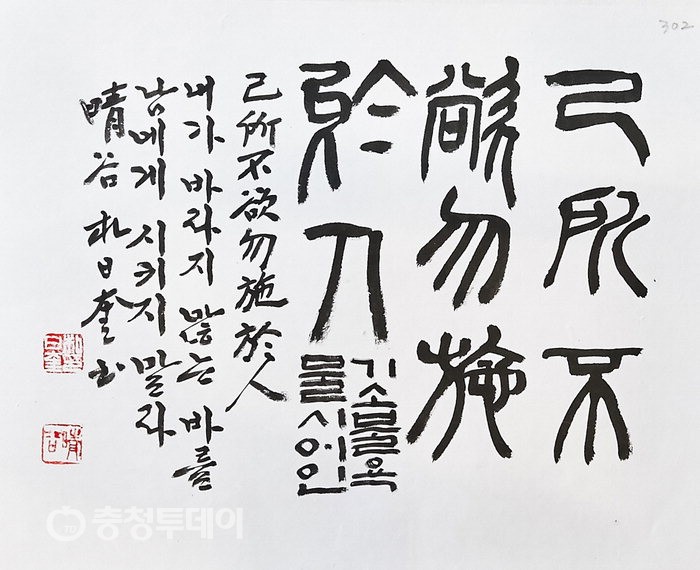 302
己所不
欲勿施
於人
기소불욕
물시어인
己所不欲勿施於人
내가 바라지 않는 바를
남에게 시키지 말라
晴谷 朴日奎 书
晴谷
충청투데이